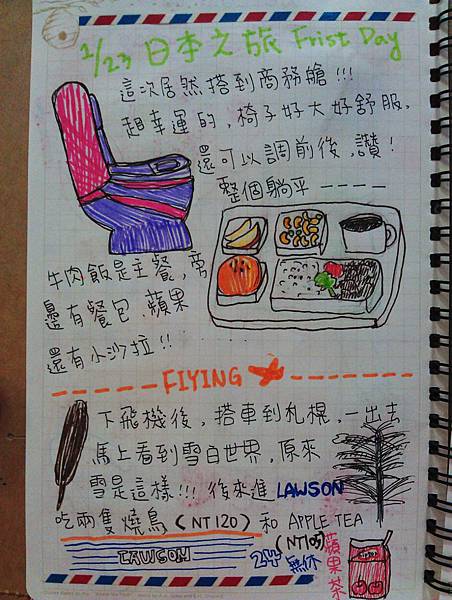 1/23 日本之旅 Frist Day
這次居然搭到商務艙!!!
超幸運的,椅子好大好舒服,
還可以調前後,讚!
整個躺平----
牛肉飯是主餐,旁
邊有餐包、蘋果
還有小沙拉!!
FIYING
下飛機後,搭車到札幌,一出去
馬上看到雪白世界,原來
雪是這樣!!! 後來進 LAWSON
吃兩隻燒鳥(NT120)和 APPLE TEA
(NT105)
LAWSON
24
無休
蘋果茶